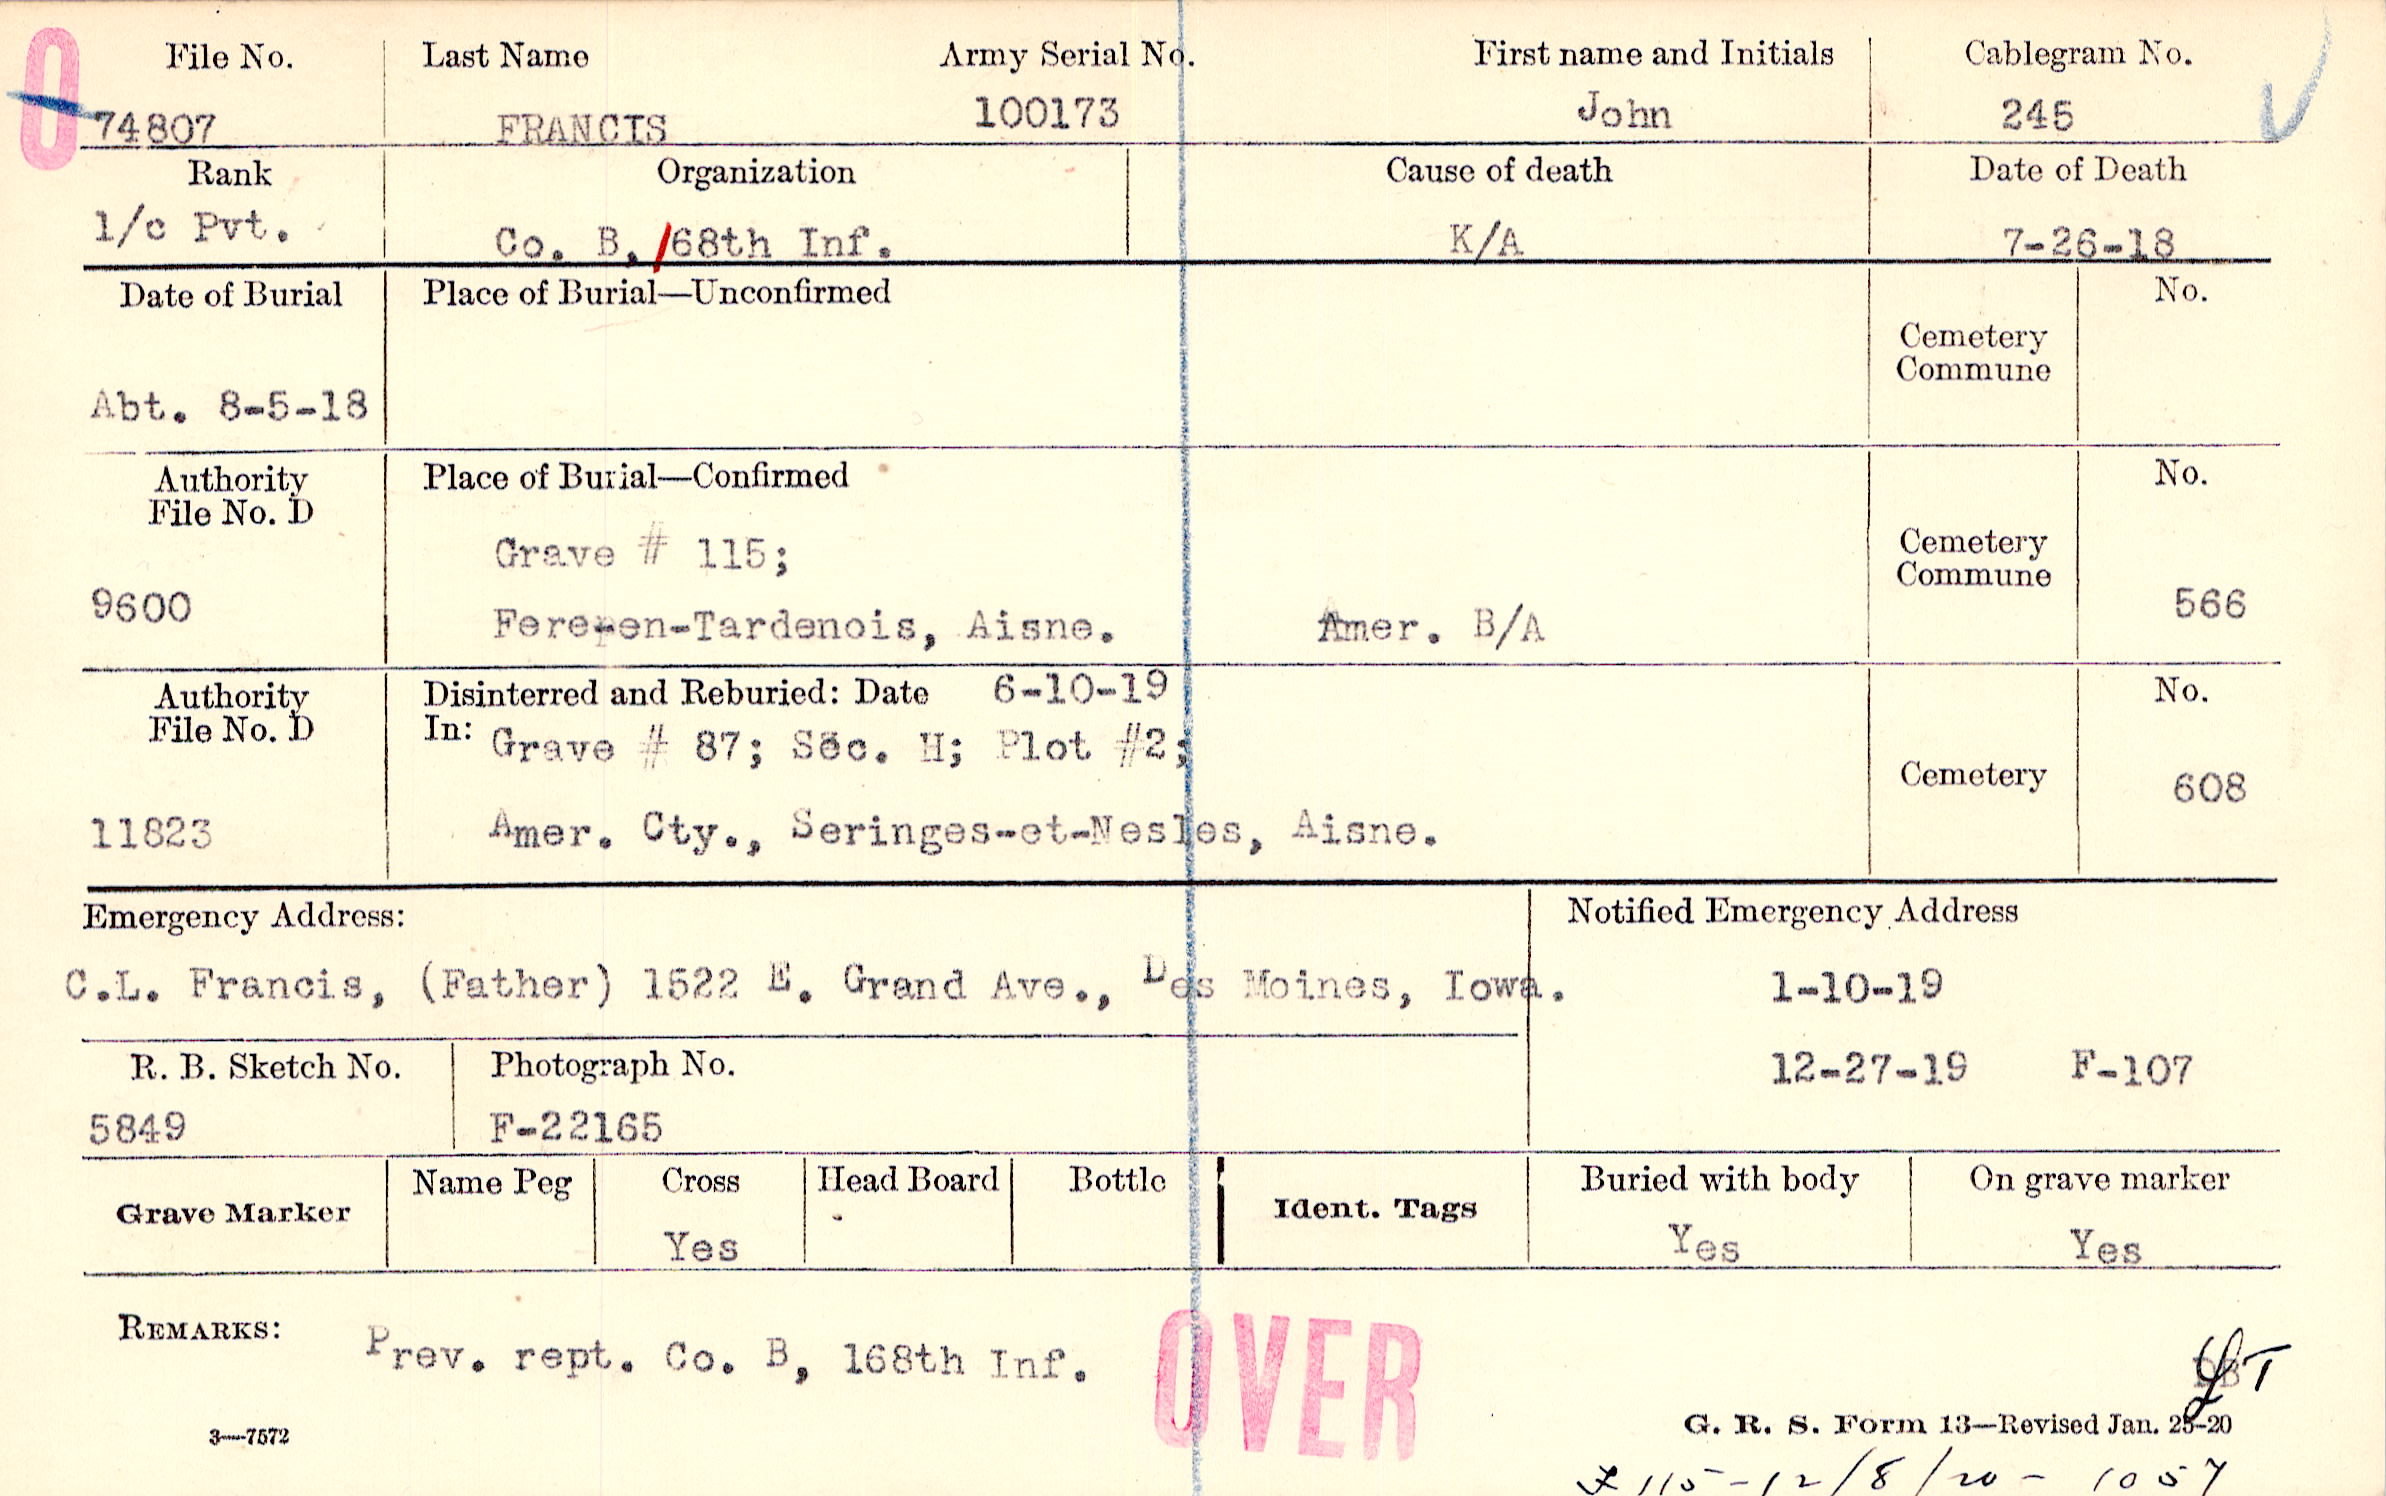 O
File No. Last Name Army Serial No. First name and Initials Cablegram No.
74807 FRANCIS 100173 John 245
Rank Organization Cause of death Date of Death
1/c Pvt. Co. B, /68th Inf. K/A 7-26-18
Date of Burial Place of Burial—Unconfirmed No.
Cemetery
Commune
Abt. 8-5-18
Authority Place of Burial—Confirmed No.
File No. D
Grave # 115; Cemetery
Commune
9600 566
Fere-en-Tardenois, Aisne. Amer. B/A
Authority Disinterred and Reburied: Date 6-10-19 No.
File No. D In: Grave # 87; Sec. H; Plot #2;
Cemetery 608
11823 Amer. Cty., Seringes-et-Nesles, Aisne.
Emergency Address: Notified Emergency Address
C.L. Francis, (Father) 1522 E. Grand Ave., Des Moines, Iowa. 1-10-19
R. B. Sketch No. Photograph No. 12-27-19 F-107
5849 F-22165
Grave Marker Name Peg Cross Head Board Bottle Ident. Tags Buried with body On grave marker
Yes Yes Yes
REMARKS: Prev. rept. Co. B, 168th Inf.
OVER
3—7572 G. R. S. Form 13—Revised Jan. 25-20
115-12/8/20- 1057